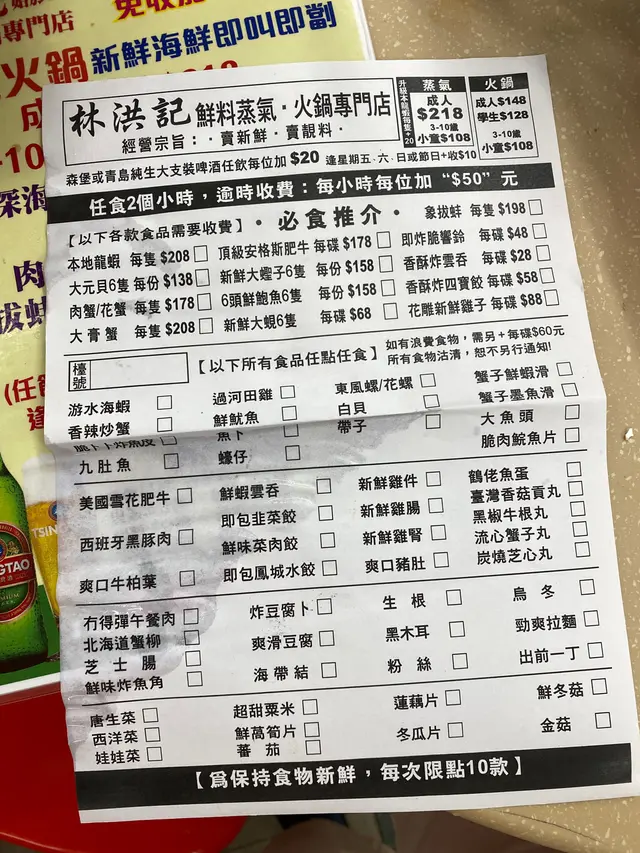 專門店
免收
火鍋
新鮮海鮮即叫即劏
林洪記 鮮料蒸氣·火鍋專門店
經營宗旨:·賣新鮮·賣靚料·
蒸氣
成人
$218
3-10歲
小童$108
火鍋
成人$148
學生$128
3-10歲
小童$108
森堡或青島純生大支裝啤酒任飲每位加 $20 逢星期五·六·日或節日+收$10
任食2個小時,逾時收費:每小時每位加 "$50" 元
【以下各款食品需要收費】·必食推介· 象拔蚌 每隻 $198
本地龍蝦 每隻 $208 頂級安格斯肥牛 每碟 $178 即炸脆響鈴 每碟 $48
大元貝6隻 每份 $138 新鮮大蟶子6隻 每份 $158 香酥炸雲吞 每碟 $28
肉蟹/花蟹 每隻 $178 6頭鮮鮑魚6隻 每份 $158 香酥炸四寶餃 每碟 $58
大膏蟹 每隻 $208 新鮮大蜆6隻 每碟 $68 花雕新鮮雞子 每碟 $88
檯號
【以下所有食品任點任食】
如有浪費食物,需另+每碟$60元
所有食物沽清,恕不另行通知!
游水海蝦 過河田雞 東風螺/花螺 蟹子鮮蝦滑
香辣炒蟹 鮮魷魚 白貝 蟹子墨魚滑
脆卜卜炸魚皮 魚卜 帶子 大魚頭
九肚魚 蠔仔 脆肉鯇魚片
美國雪花肥牛 鮮蝦雲吞 新鮮雞件 鶴佬魚蛋
即包韭菜餃 新鮮雞腸 臺灣香菇貢丸
西班牙黑豚肉 鮮味菜肉餃 新鮮雞腎 黑椒牛根丸
流心蟹子丸
爽口牛柏葉 即包鳳城水餃 爽口豬肚 炭燒芝心丸
冇得彈午餐肉 炸豆腐卜 生根 烏冬
北海道蟹柳 爽滑豆腐 黑木耳 勁爽拉麵
芝士腸 海帶結 粉絲 出前一丁
鮮味炸魚角
唐生菜 超甜粟米 蓮藕片 鮮冬菇
西洋菜 鮮萬筍片 冬瓜片 金菇
娃娃菜 蕃茄
【為保持食物新鮮,每次限點10款】